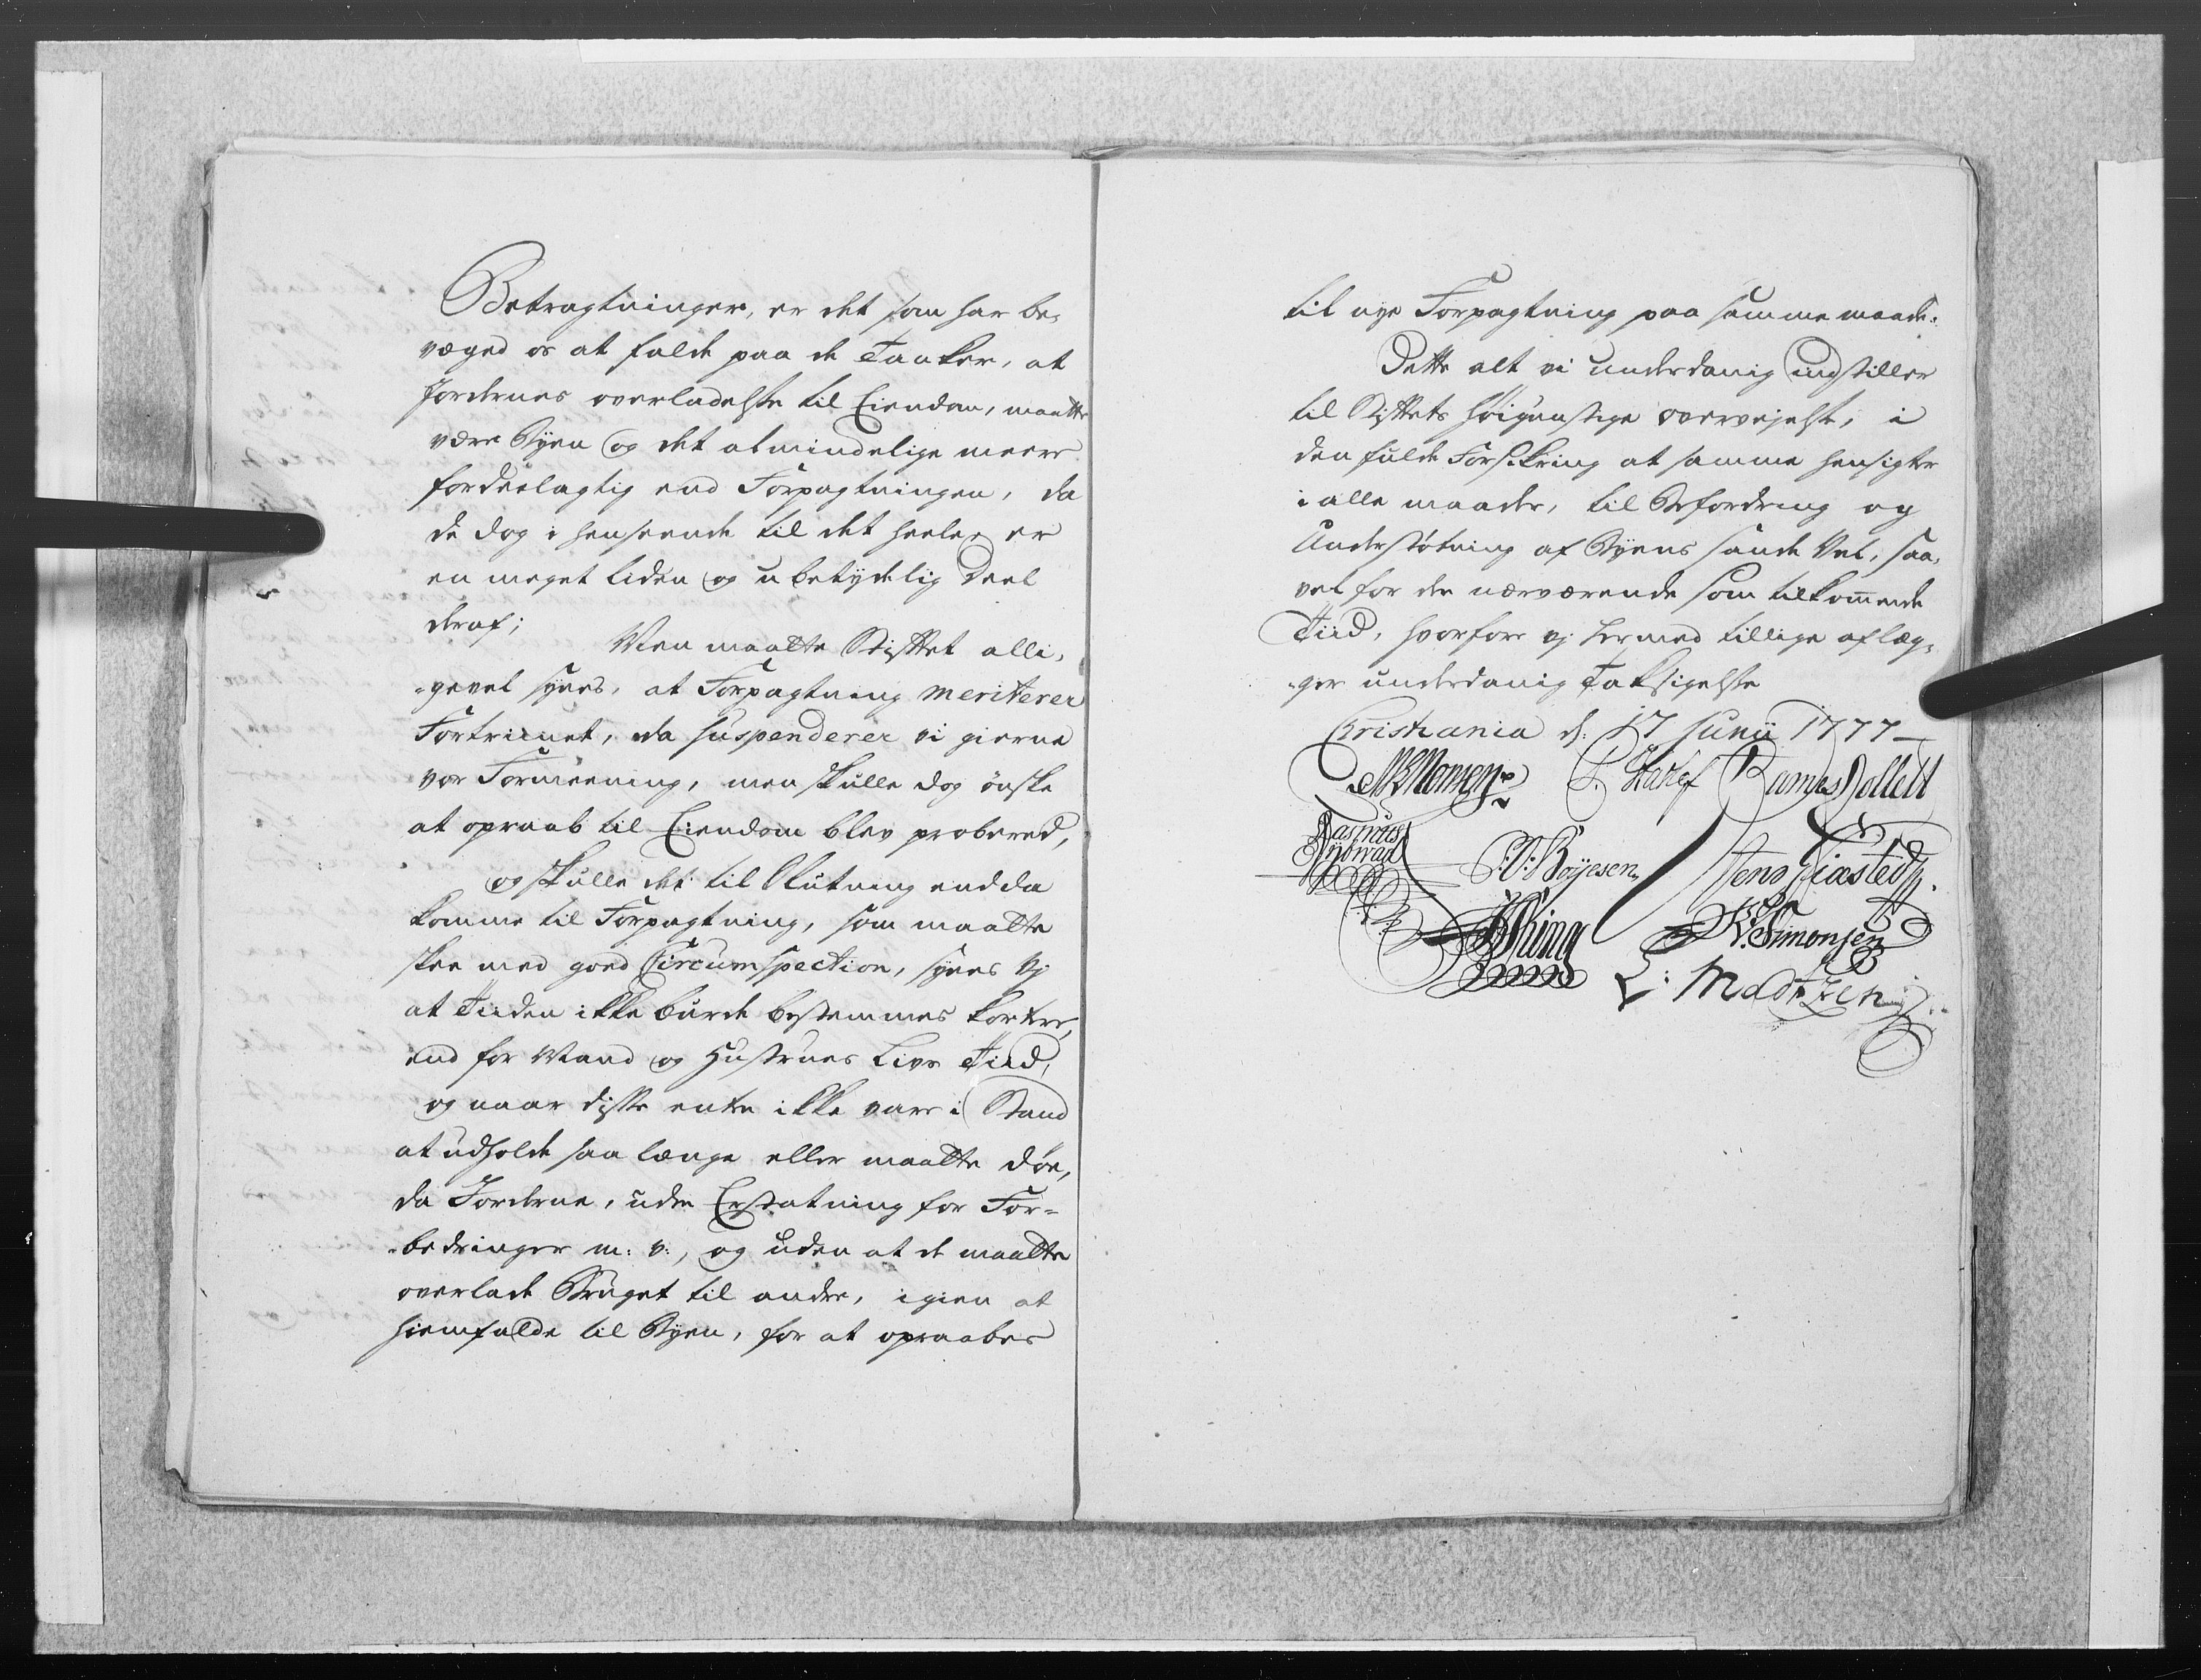 Betragtninger, er det som har be-
væged os at falde paa de Tanker, at
Jordernes overladelse til Eiendom, maatte
være Byen og det almindelige meere
fordeelagtig end Forpagtningen, da
de dog i henseende til det heele, er
en meget liden og ubetydelig Deel
deraf;
Men maatte Stiftet alli-
-gevel synes, at Forpagtning meriterer
Fortrinet, da suspenderer vi gierne
vor Formeening, men skulle dog ønske
at opraab til Eiendom blev probered,
og skulle det til Slutning endda
komme til Forpagtning, som maatte
skee med goed Circumspection, synes vj
at Tiiden ikke burde bestemmes korter,
end for Mand og Hustrues Livs Tiid,
og naar disse enten ikke vare i Stand
at udholde saa længe eller maatte døe,
da Jorderne, uden Erstatning for For-
-bedringer m: v:, og uden at de maatte
overlade Bruget til andre, igien at
hiemfalde til Byen, for at opraabes
til nye Forpagtning paa samme maade.
Dette alt vi underdanig indstiller
til Stiftets høigunstige overvejelse, i
den fulde Forsikring at samme hensigter
i alle maader, til Befordring og
Understøtning af Byens sande Vel, saa-
vel for den nærværende som tilkommende
Tiid, hvorfore vj hermed tillige aflæg-
-ger underdanig Taksigelse
Christiania d: 17 Junii 1777
Monsen James Collett
Rasmus
P: Børgesen Jens
Simonsen
L: Madtzen